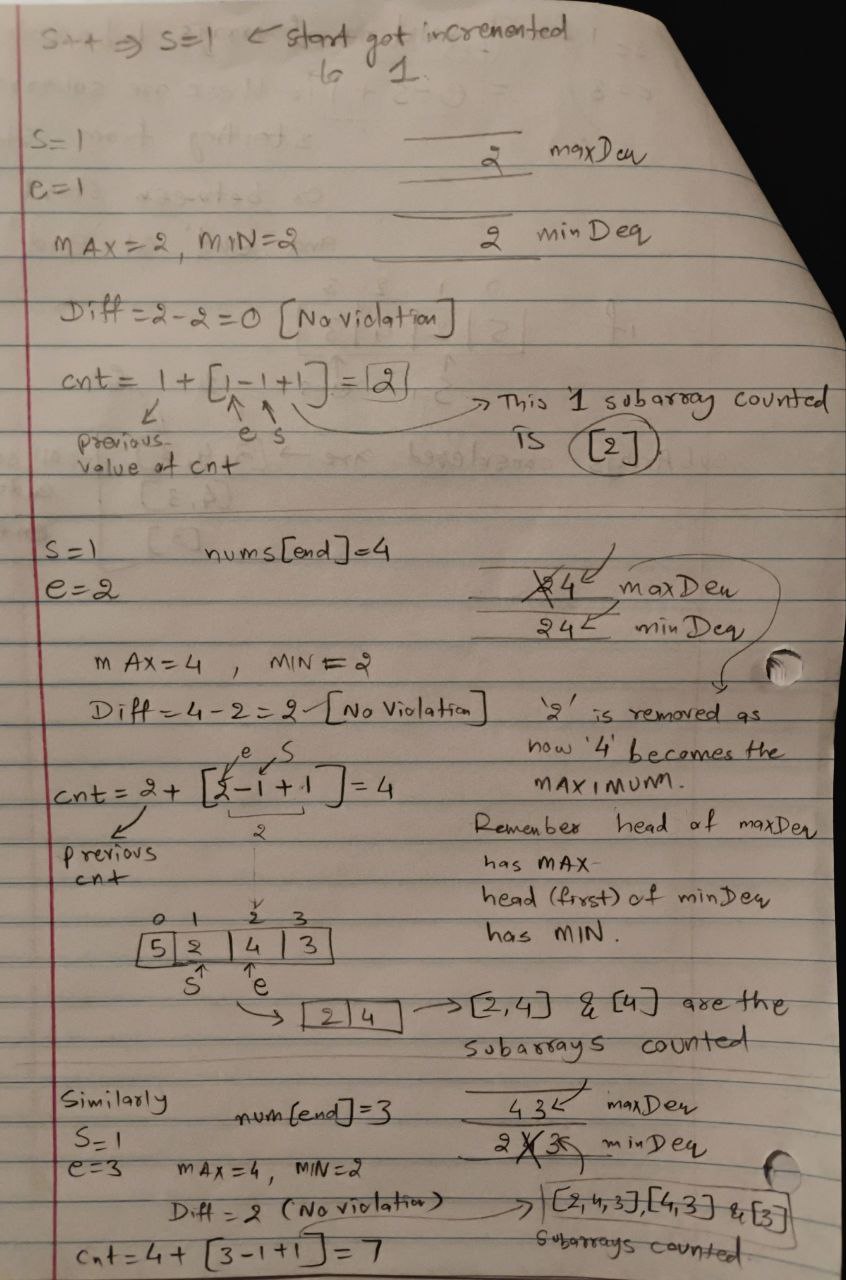 S++ ⇒ S=1 ← start got incremented
to 1.
S=1
2 maxDeq
e=1
MAX=2, MIN=2
2 minDeq
Diff=2-2=0 [No violation]
cnt = 1+[1-1+1]=2
e s
→ This '1 subarray counted
is [2]
previous
value of cnt
S=1 nums[end]=4
e=2
24 maxDeq
24 minDeq
MAX=4, MIN=2
Diff=4-2=2 [No Violation]
'2' is removed as
now '4' becomes the
MAXIMUM.
e S
cnt=2+[2-1+1]=4
2
previous
cnt
Remember head of maxDeq
has MAX
head (first) of minDeq
has MIN.
0 1 2 3
5 2 4 3
S e
→ 2 4 → [2,4] & [4] are the
subarrays counted
Similarly
num[end]=3
43 maxDeq
S=1
2 4 3 minDeq
e=3 MAX=4, MIN=2
Diff=2 (No violation)
→ [2,4,3],[4,3] & [3]
subarrays counted.
Cnt=4+[3-1+1]=7